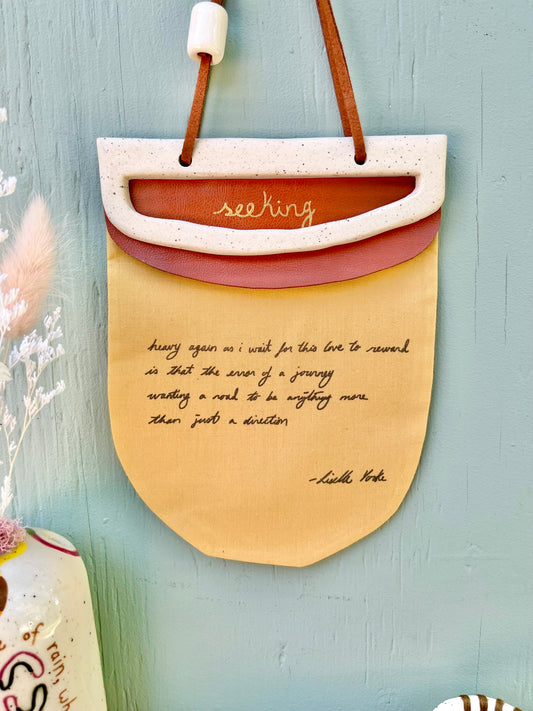 seeking
heavy again as i wait for this love to reward
is that the error of a journey
wanting a road to be anything more
than just a direction
- Liselle Yorke
of rain, wh